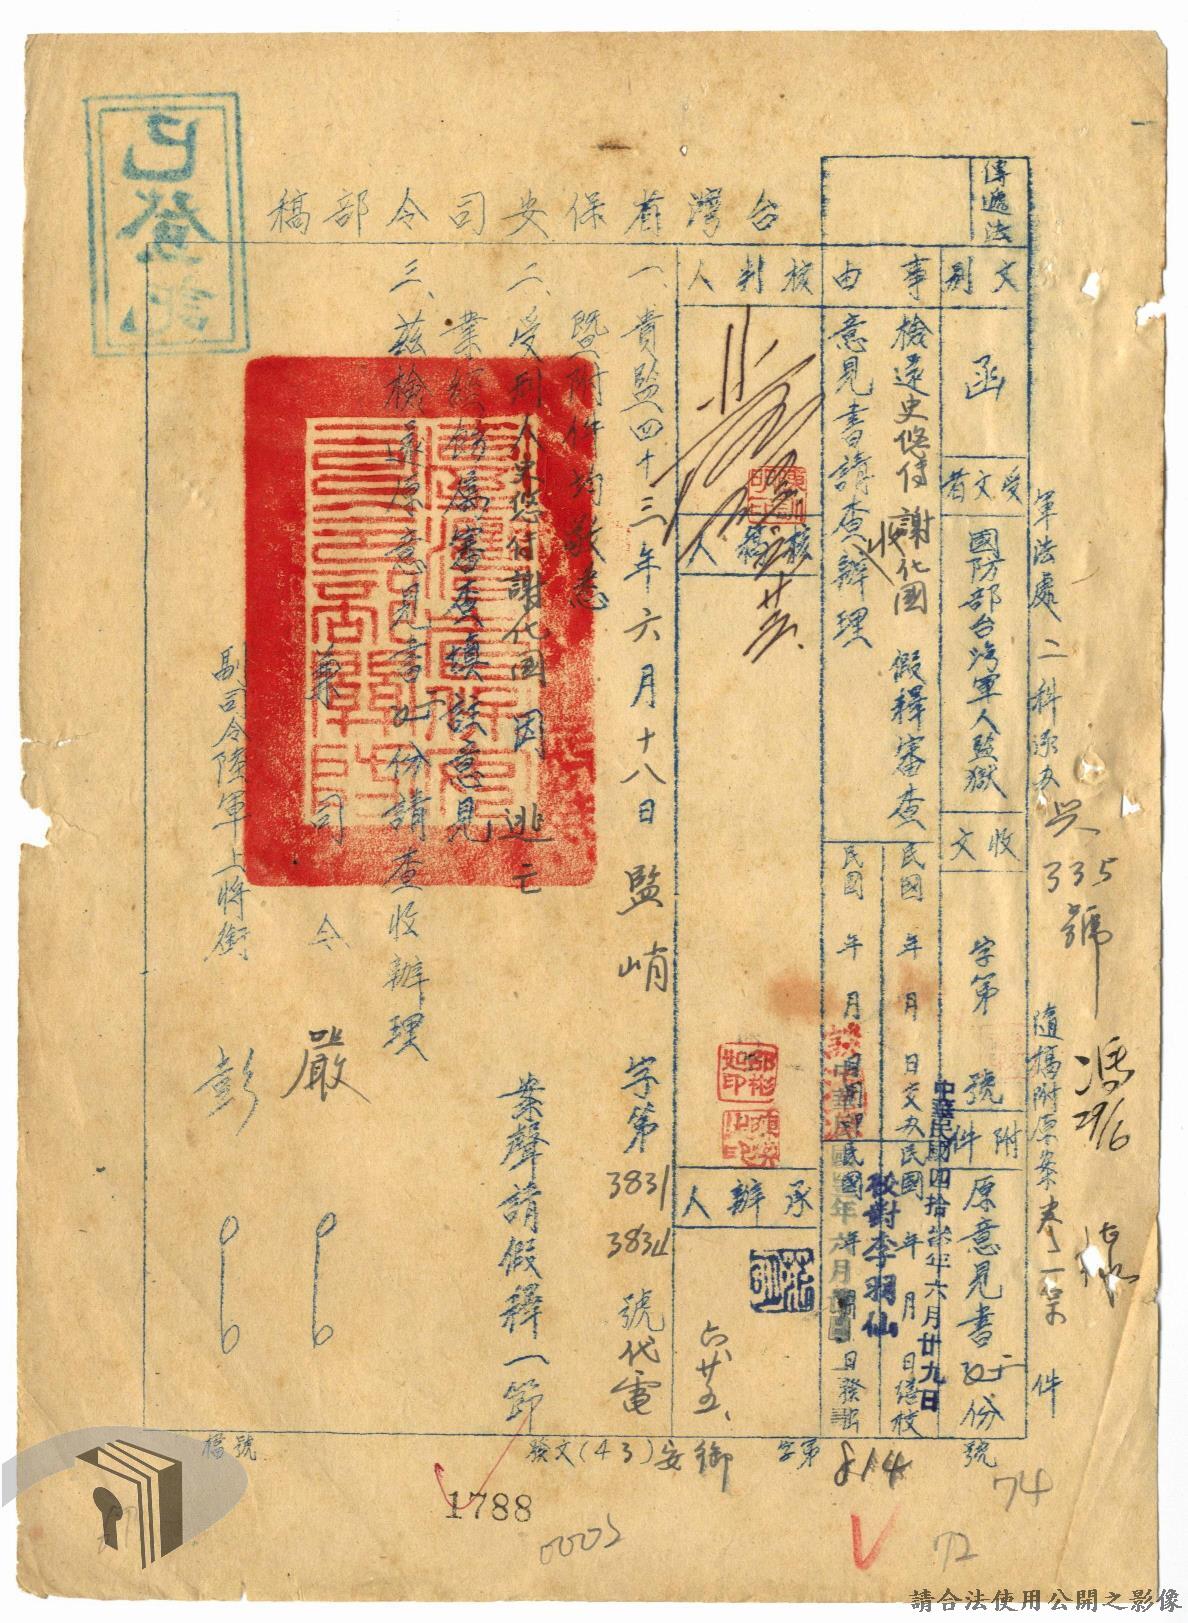 台灣省保安司令部稿
傳遞法
軍法處二科承办
335號
隨稿附原案卷二宗
件
文別
函
受文者
國防部台灣軍人監獄
收文
字第
號
附件
原意見書
份
事由
檢還史悠傳謝化國假釋審查
意見書請查收辦理
民國 年 月 日交办
民國 年 月 日繕校
民國 年 月
日發出
中華民國四拾叁年六月廿九日
校對李羽仙
核判人
核稿人
承辦人
六廿五、
一、貴監四十三年六月十八日監崤字第3831 3834號代電
暨附件均敬悉
二、受刑人史悠付謝化國因逃亡案聲請假釋一節
業經飭屬審查填註意見
三、茲檢還原意見書 份請查收辦理
兼司令 嚴
副司令陸軍上將銜 彭
檔號
發文(43)安御
字第
814
號
1788
0003
74
72
29/6
請合法使用公開之影像